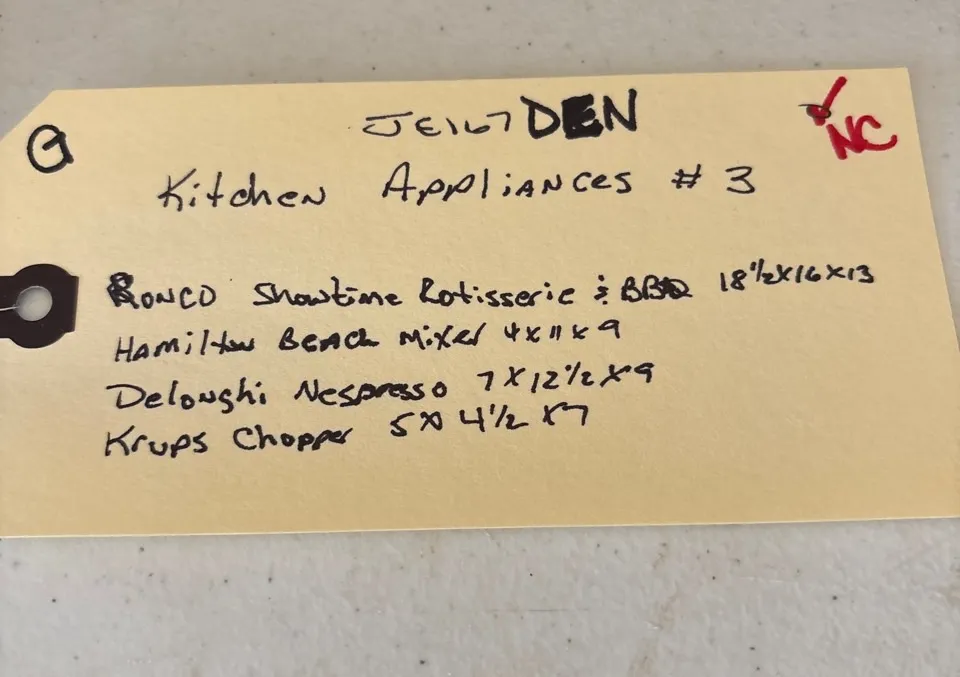 JE167 DEN
NC
Q
Kitchen Appliances # 3
Ronco Showtime Rotisserie & BBQ 18 1/2 x 16 x 13
Hamilton Beach Mixer 4 x 11 x 9
Delonghi Nespresso 7 x 12 1/2 x 9
Krups Chopper 5 x 4 1/2 x 7